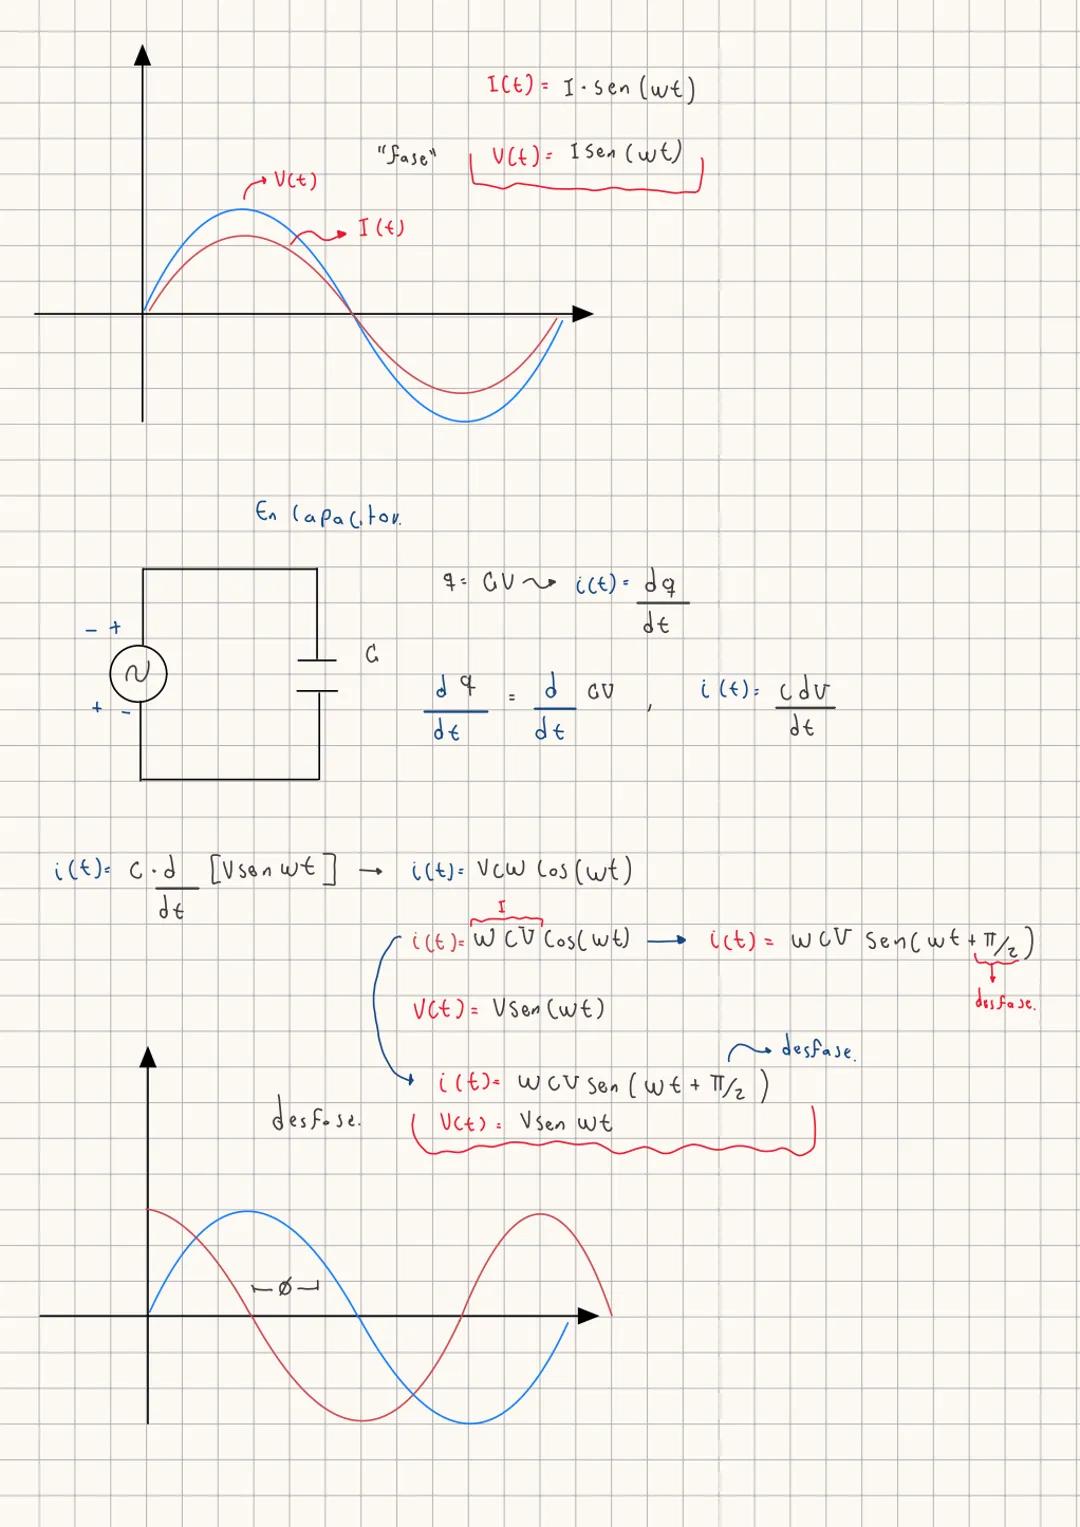 I(t) = I · sen (wt)
"fase" V(t) = I sen (wt)
V(t)
I(t)
En Capacitor.
q = CV ⤳ i(t) = dq/dt
- +
C
+ -
dq/dt = d/dt CV , i(t) = cdv/dt
i(t) = C · d/dt [Vsen wt] → i(t) = VCW Cos(wt)
I
i(t) = WCV Cos(wt) → i(t) = WCV Sen(wt + π/2)
desfase.
V(t) = Vsen(wt)
desfase.
i(t) = WCV sen (wt + π/2)
desfase.
V(t) = Vsen wt
⊢ Ø ⊣